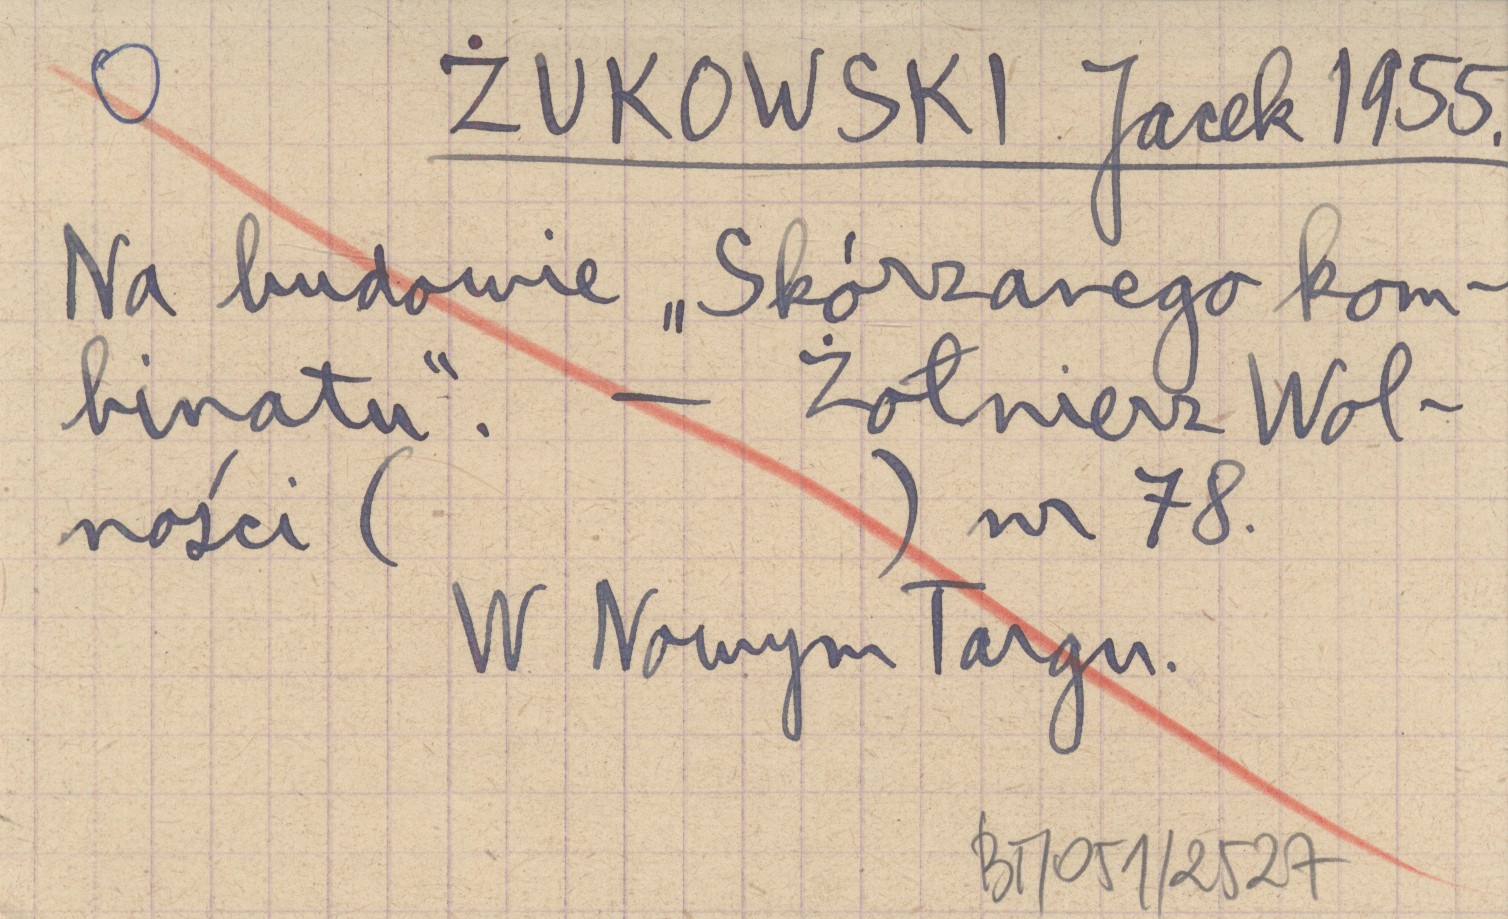 ŻUKOWSKI Jacek 1955.
Na budowie „Skórzanego kom-
binatu“. — Żołnierz Wol-
ności ( ) nr 78.
W Nowym Targu.
BT/051/2527